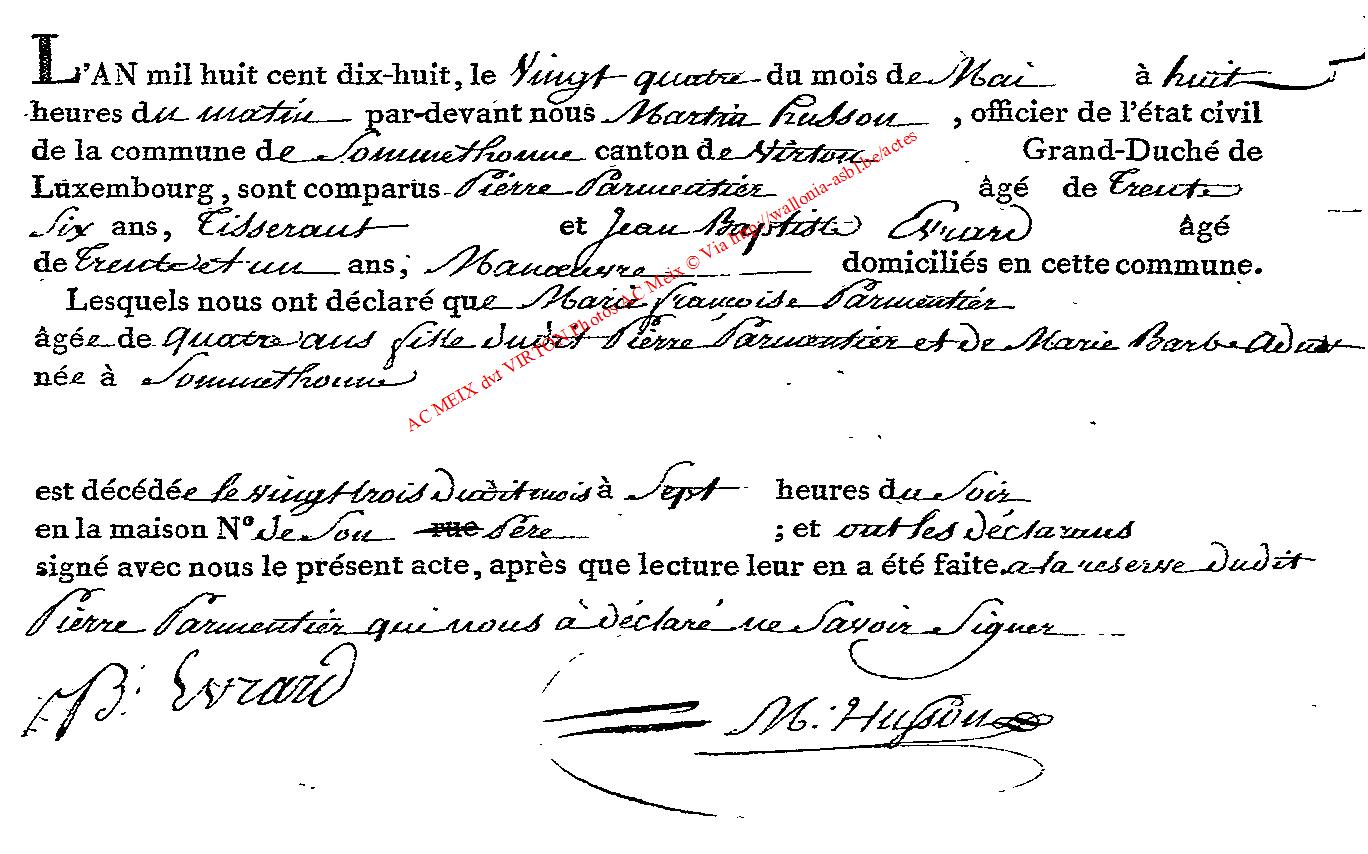 L'AN mil huit cent dix-huit, le Vingt quatre du mois de Mai à huit
heures du matin par-devant nous Martin husson, officier de l'état civil
de la commune de Sommethonne canton de Virton Grand-Duché de
Luxembourg, sont comparus Pierre Parmentier âgé de trente
Six ans, Tisserant et Jean Baptiste Evrard âgé
de trente et un ans, Manœuvre domiciliés en cette commune.
Lesquels nous ont déclaré que Marie françoise Parmentier
âgée de quatre ans fille dudit Pierre Parmentier et de Marie Barbe
née à Sommethonne
est décédée le vingt trois dudit mois à Sept heures du Soir
en la maison N° de Son rue Père ; et ont les déclarans
signé avec nous le présent acte, après que lecture leur en a été faite a la reserve dudit
Pierre Parmentier qui nous à déclaré ne Savoir Signer
B. Evrard
M. Husson
AC MEIX dvt VIRTON Photos AC Meix © Via http://wallonia-asbl.be/actes